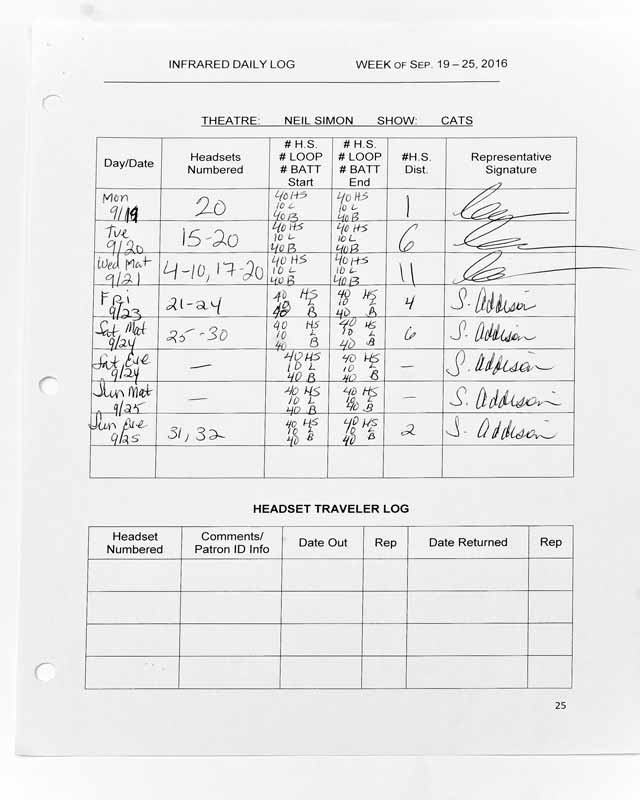 INFRARED DAILY LOG WEEK OF SEP. 19 – 25, 2016
THEATRE: NEIL SIMON SHOW: CATS
Day/Date Headsets Numbered # H.S. # LOOP # BATT Start # H.S. # LOOP # BATT End #H.S. Dist. Representative Signature
Mon 9/19 20 40 HS 10 L 40 B 40 HS 10 L 40 B 1
Tue 9/20 15-20 40 HS 10 L 40 B 40 HS 10 L 40 B 6
Wed Mat 9/21 4-10, 17-20 40 HS 10 L 40 B 40 HS 10 L 40 B 11
Fri 9/23 21-24 40 HS 10 L 40 B 40 HS 10 L 40 B 4 S. Addison
Sat Mat 9/24 25-30 40 HS 10 L 40 B 40 HS 10 L 40 B 6 S. Addison
Sat Eve 9/24 — 40 HS 10 L 40 B 40 HS 10 L 40 B — S. Addison
Sun Mat 9/25 — 40 HS 10 L 40 B 40 HS 10 L 40 B — S. Addison
Sun Eve 9/25 31, 32 40 HS 10 L 40 B 40 HS 10 L 40 B 2 S. Addison
HEADSET TRAVELER LOG
Headset Numbered Comments/ Patron ID Info Date Out Rep Date Returned Rep
25